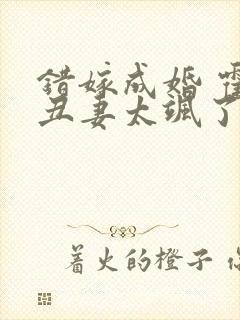 错嫁成婚
丑妻太飒了
着火的橙子